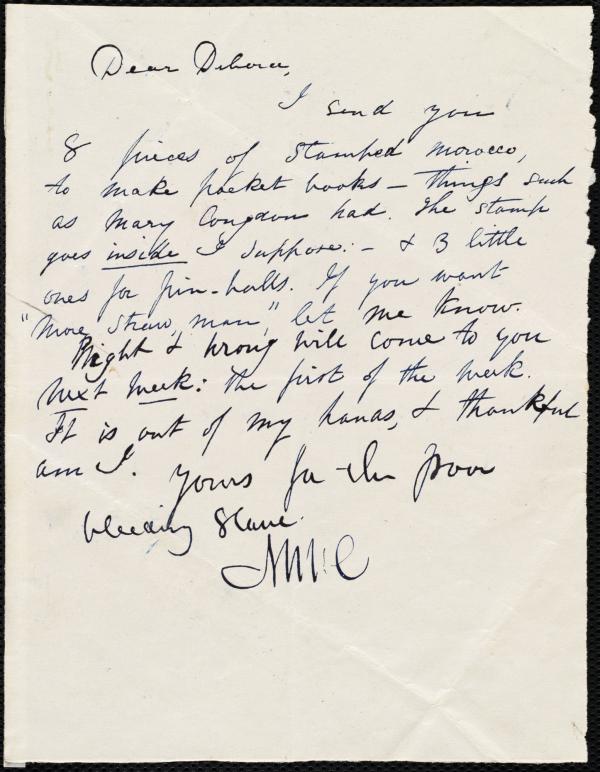 Dear Debora,
I send you
8 pieces of stamped morocco,
to make pocket books — things such
as Mary Congdon had. The stamp
goes inside I suppose: — & 3 little
ones for pin-balls. If you want
"more straw, man," let me know.
Right & Wrong will come to you
next week: the first of the week.
It is out of my hands, & thankful
am I. Yours for the poor
bleeding Slave.
MWC